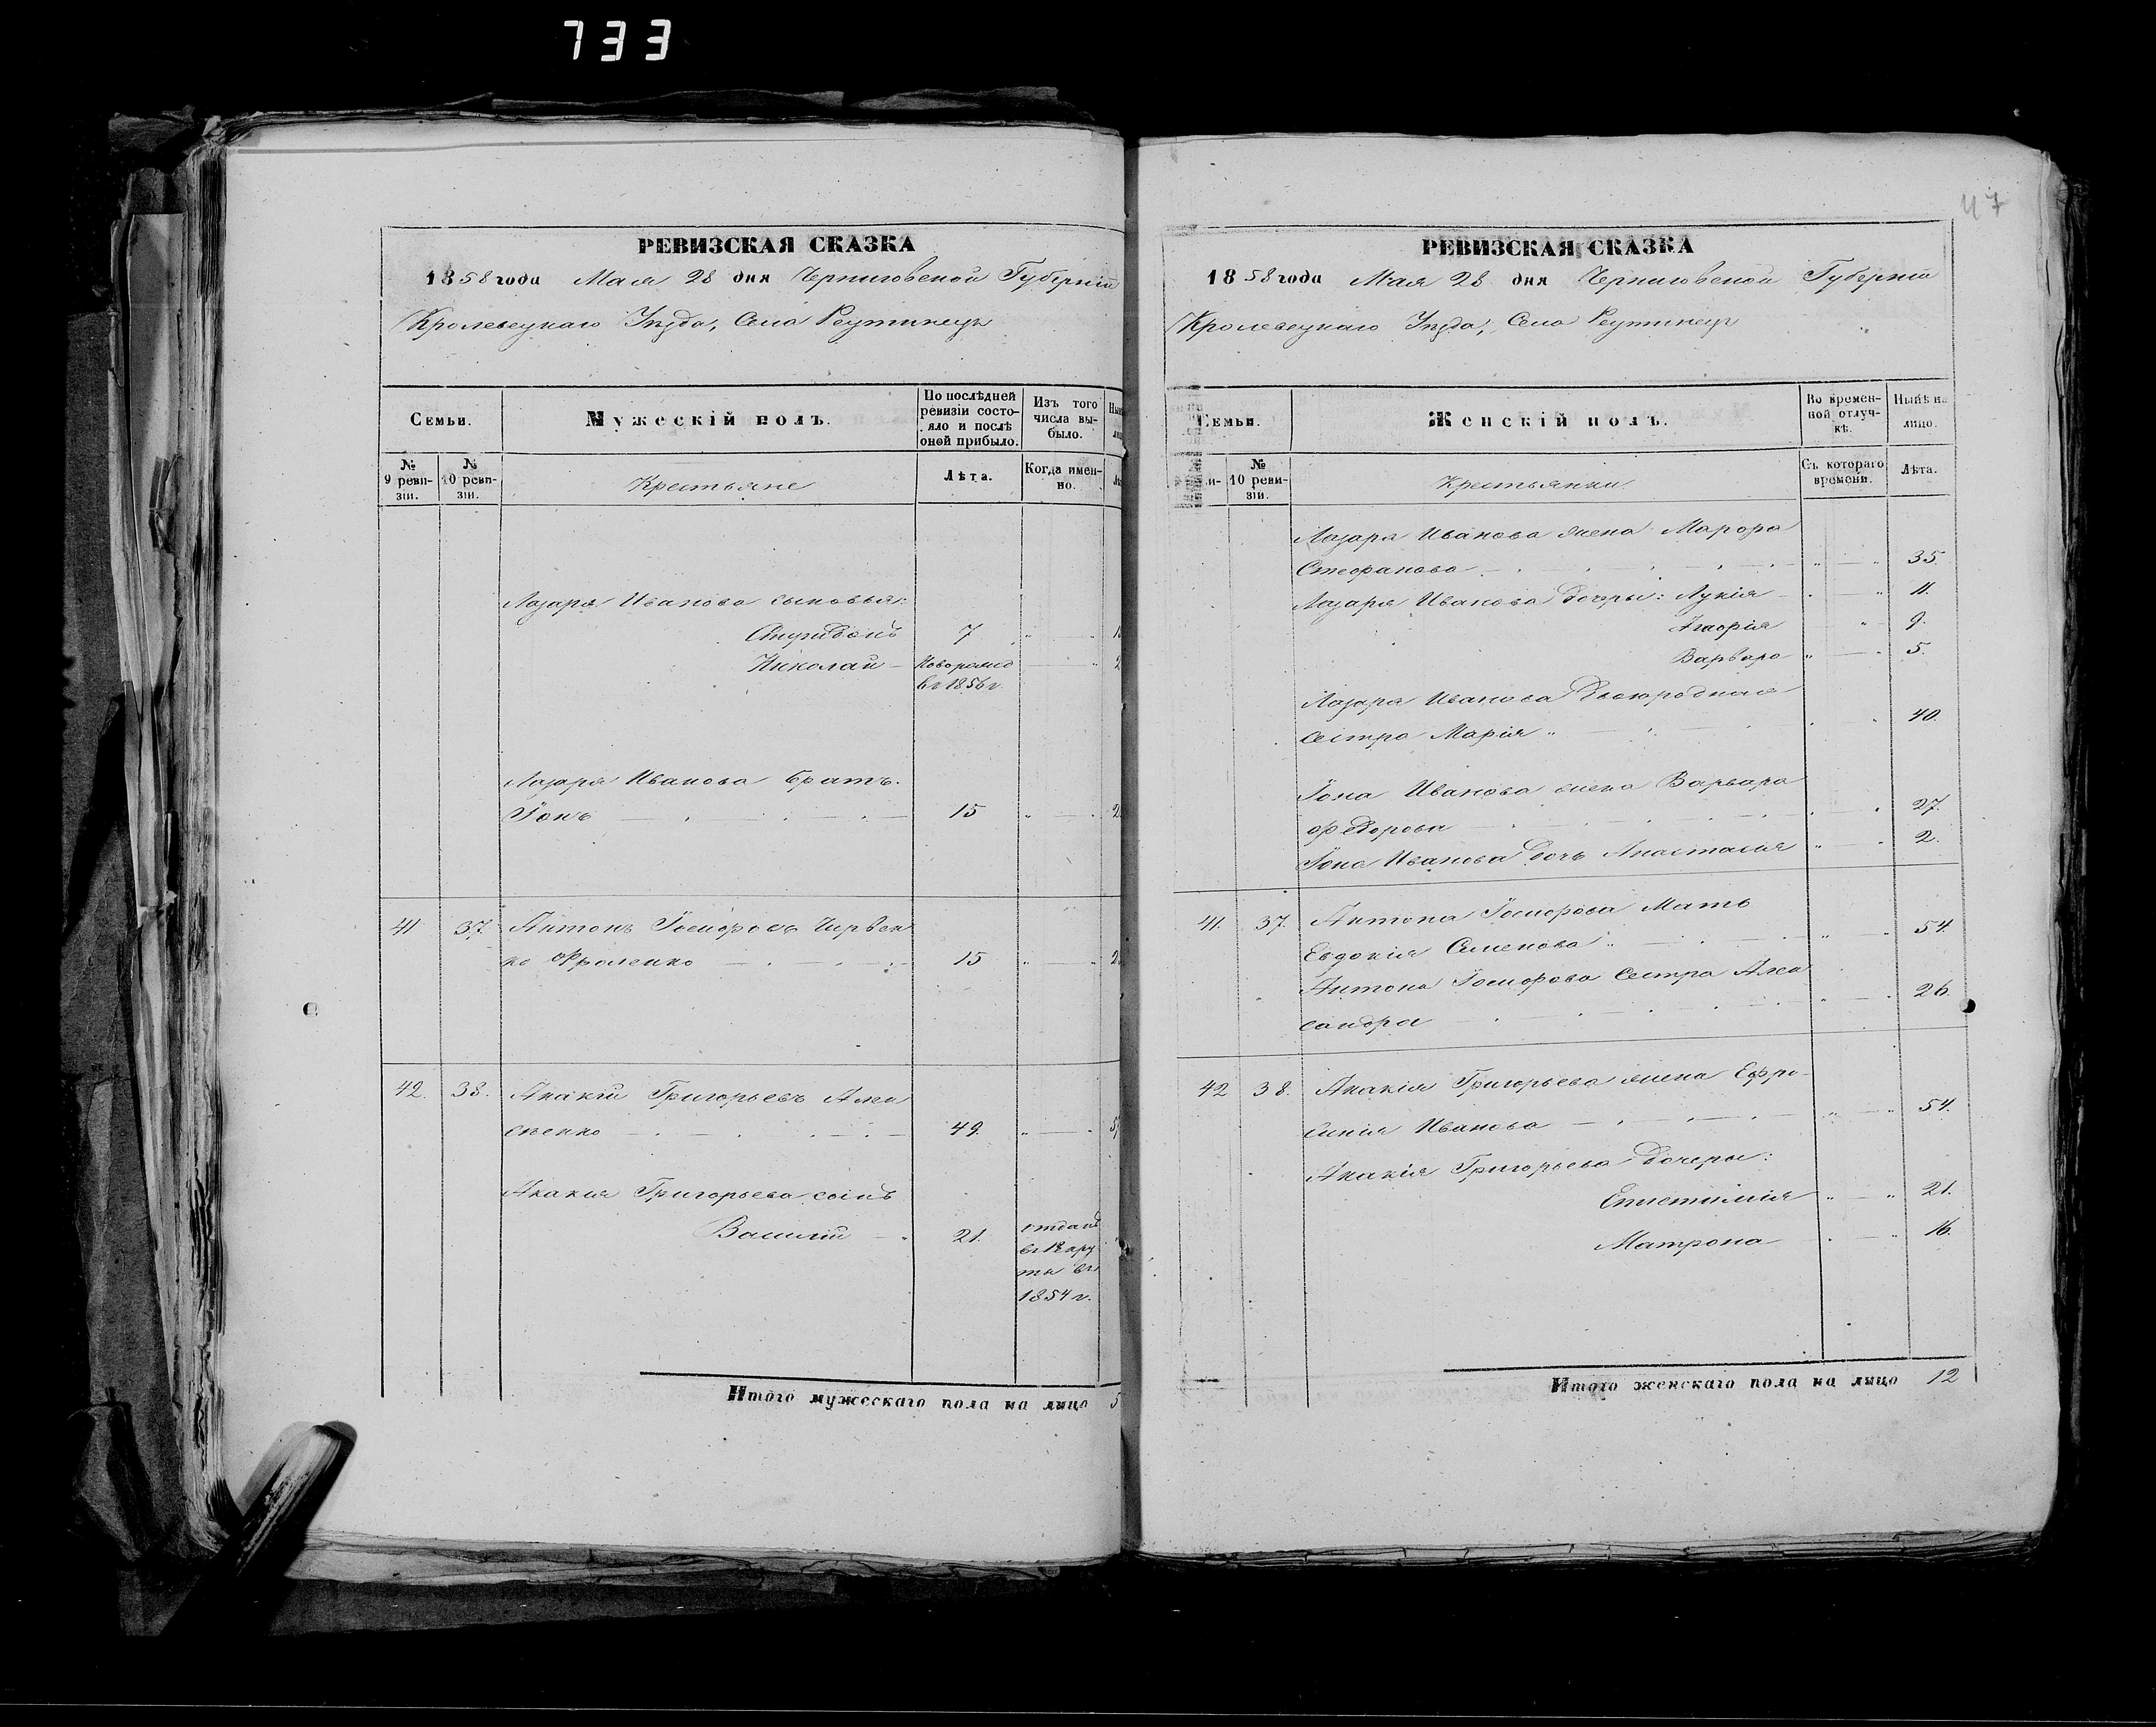 733
47
РЕВИЗСКАЯ СКАЗКА
1858 года Мая 28 дня Черниговской Губерніи
Кролевецкаго Уѣзда, Села Реутинецъ
Семьи.
Мужескій полъ.
По послѣдней ревизіи состояло и послѣ оной прибыло.
Изъ того числа выбыло.
№ 9 ревизіи.
№ 10 ревизіи.
Крестьяне
Лѣта.
Когда именно.
Лазаря Иванова сыновья:
Спиридонъ 7
Николай - новорожд
въ 1856 г.
Лазаря Иванова братъ.
Іонъ 15
41 37. Антонъ
ко Фроленко 15
42. 38. Акакій Григорьевъ Алек
сѣенко 49.
Акакія Григорьева сынъ
Василій 21. отданъ
въ рекру
ты въ
1854 г.
Итого мужескаго пола на лицо 5
РЕВИЗСКАЯ СКАЗКА
1858 года Мая 28 дня Черниговской Губерніи
Кролевецкаго Уѣзда, Села Реутинецъ
Семьи.
Женскій полъ.
Во временной отлучкѣ.
Нынѣ на лицо.
№ 10 ревизіи.
Крестьянки
Съ котораго времени.
Лѣта.
Лазаря Иванова жена Марфа
Стефанова 35.
Лазаря Иванова дочери: Лукія 11.
Агафія 9.
Варвара 5.
Лазаря Иванова двоюродная
сестра Марія 40.
Іона Иванова жена Варвара
Федорова 27.
Іона Иванова дочь Анастасія 2.
41. 37. Антона мать
Евдокія Семенова 54.
Антона сестра Алек
сандра 26.
42 38. Акакія Григорьева жена Ефро-
синія Иванова 54.
Акакія Григорьева дочери:
Епистимія 21.
Матрона 16.
Итого женскаго пола на лицо 12